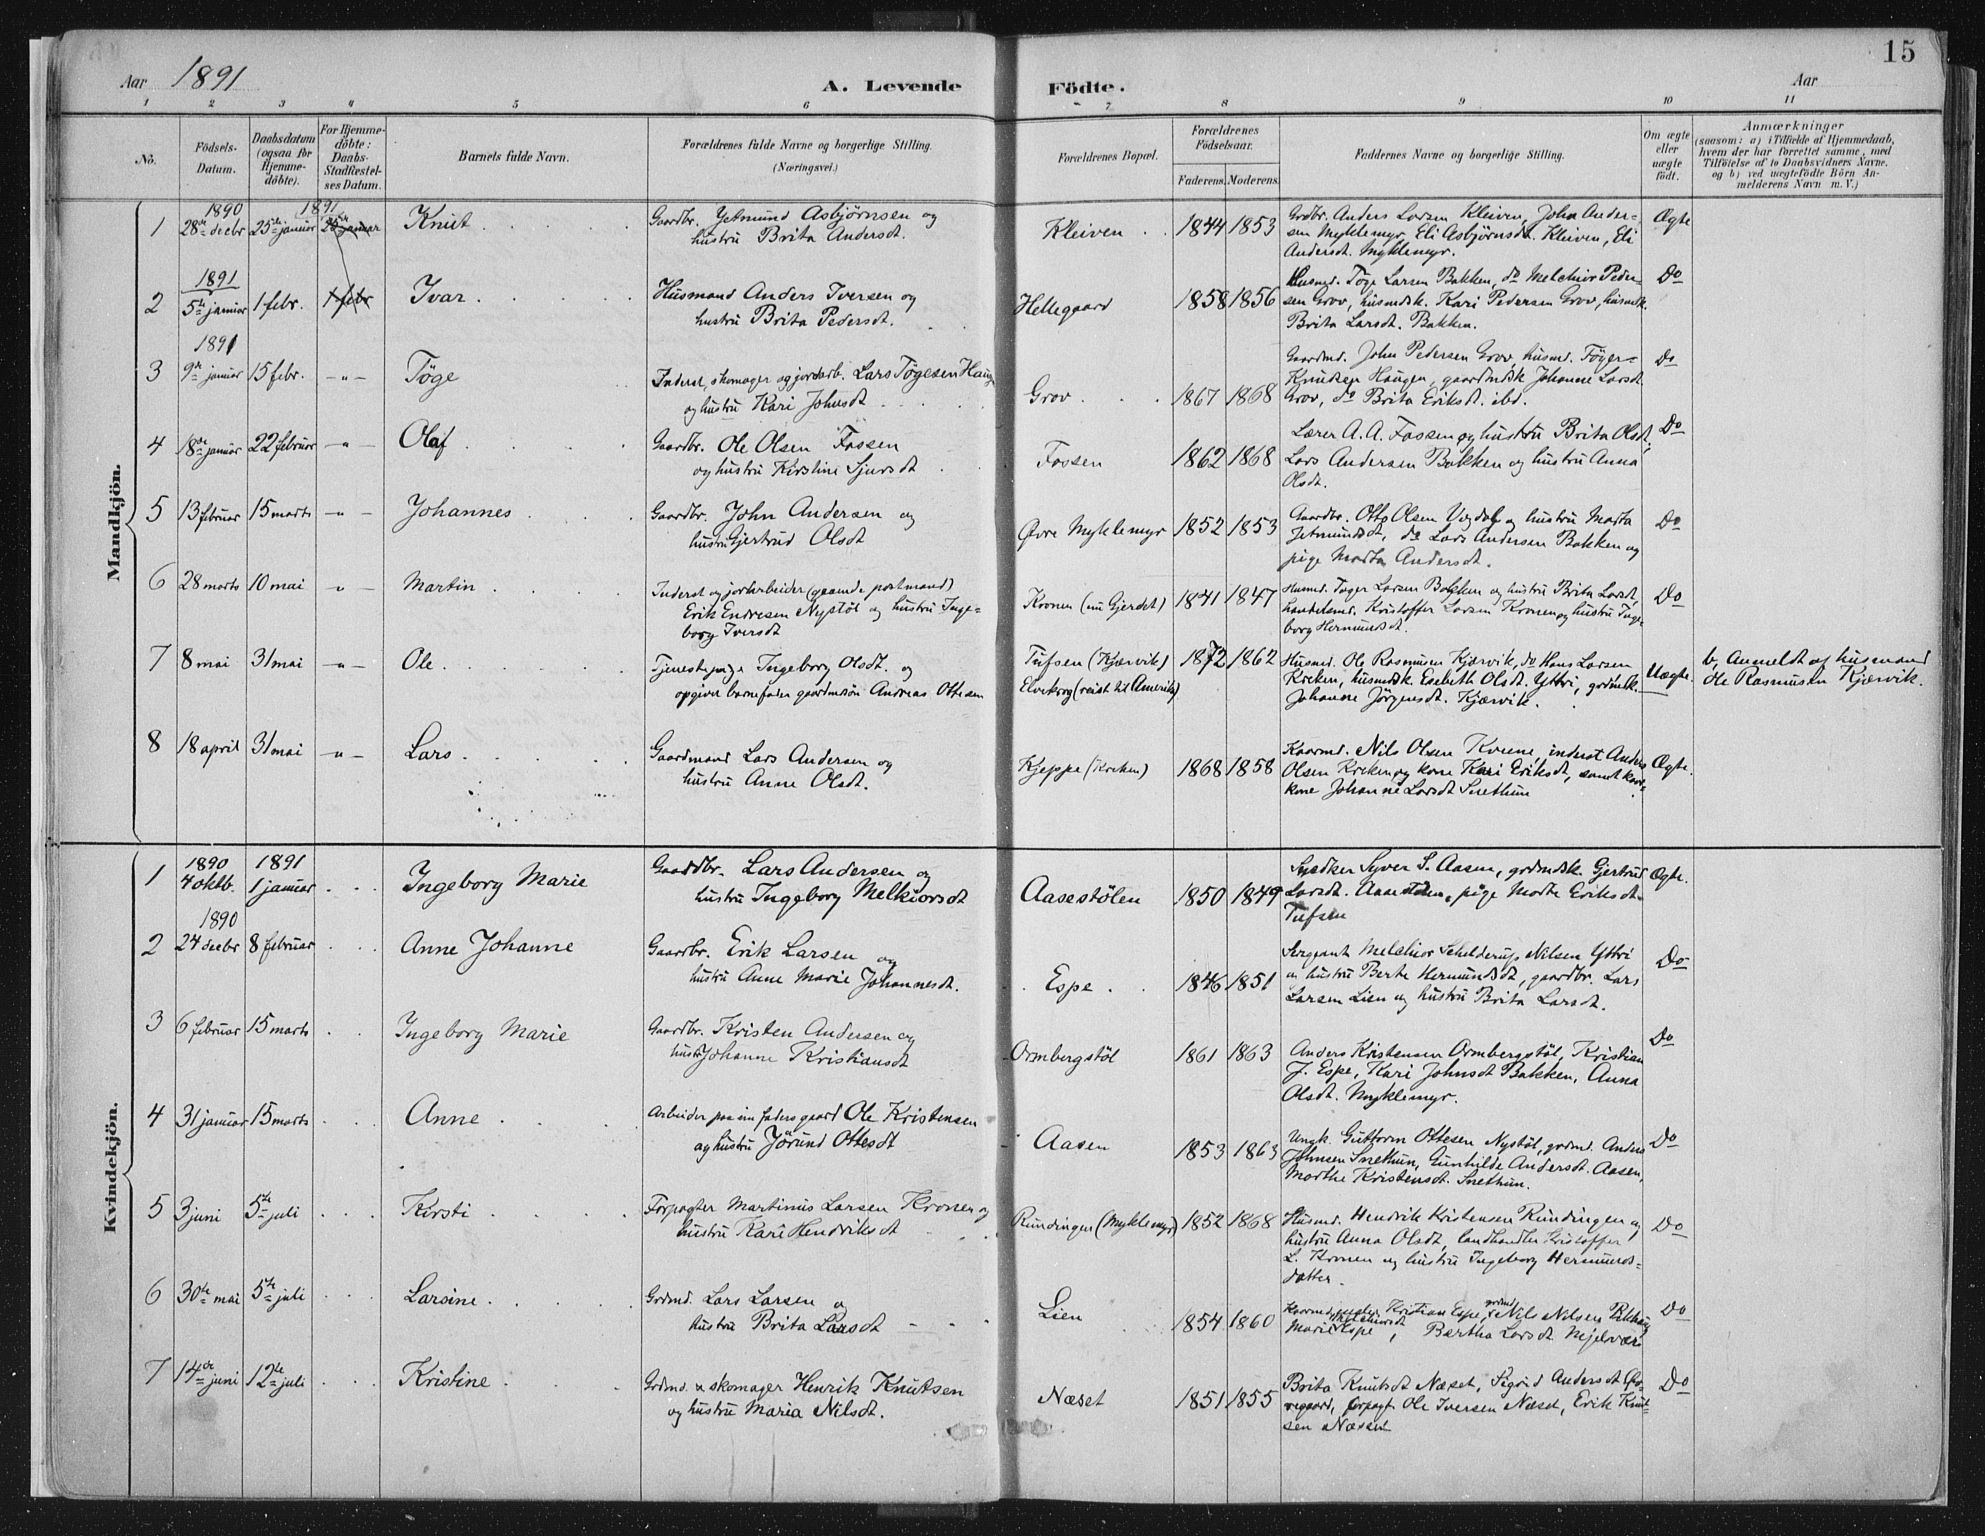 15
Aar 1891
A. Levende Födte.
Aar
1 2 3 4 5 6 7 8 9 10 11
No.
Födsels-Datum.
Daabsdatum (ogsaa for Hjemme-döbte).
For Hjemme-döbte: Daabs-Stadfæstel-ses Datum.
Barnets fulde Navn.
Forældrenes fulde Navne og borgerlige Stilling.
(Næringsvei.)
Forældrenes Bopæl.
Forældrenes Födselsaar.
Faderens. Moderens.
Faddernes Navne og borgerlige Stilling.
Om ægte eller uægte födt.
Anmærkninger
(saasom: a) i Tilfælde af Hjemmedaab, hvem der har forrettet samme, med Tilföielse af to Daabsvidners Navne, og b) ved uægtefödte Börn An-melderens Navn m. V.)
Mandkjön.
1890 1891
1 28de decbr 25de januar 25de januar Knut
Gaardbr. Jetmund Asbjørnsen og
hustru Brita Andersdt.
Kleiven 1844 1853
Grdbr. Anders Larsen Kleiven, John Ander-
sen Myklemyr, Eli Asbjørnsdt. Kleiven, Eli
Andersdt. Myklemyr.
Ægte
1891
2 5te januar 1 febr. 1 febr Ivar
Husmand Anders Iversen og
hustru Brita Pedersdt.
Hellegaard 1858 1856
Husmd. Tøge Larsen Bakken, do Melchior Peder-
sen Grov, husmdsk. Kari Pedersen Grov, husmdsk.
Brita Larsdt. Bakken.
Do
1891
3 9de januar 15 febr. -"- Tøge
Inderst, skomager og jordarb. Lars Tøgesen Haug
og hustru Kari Johnsdt
Grov 1867 1868
Gaardmd. John Pedersen Grov, husmd. Tøger
Knudsen Haugen, gaardmdsk Johanne Larsdt.
Grov, do Brita Eriksdt. ibd.
Do
4 18de januar 22 februar -"- Olaf
Gaardbr. Ole Olsen Fossen
og hustru Kirstine Sjursdt
Fossen 1862 1868
Lærer A. A. Fossen og hustru Brita Olsdt,
Lars Andersen Bakken og hustru Anna
Olsdt.
Do
5 13 februar 15 marts -"- Johannes
Gaardbr. John Andersen og
hustru Gjertrud Olsdt
Øvre Myklemyr 1852 1853
Gaardbr. Otto Olsen og hustru Marta
Jetmundsdt, do Lars Andersen Bakken og
pige Marta Andersdt.
Do
6 28 marts 10 mai -"- Martin
Inderst og jordarbeider (gaaende postmand)
Erik Endresen Nystøl og hustru Inge-
borg Iversdt
Kronen (nu Gjerdet) 1841 1847
Husmd. Tøger Larsen Bakken og hustru Brita Larsdt,
handelsmd. Kristoffer Larsen Kronen og hustru Inge-
borg Hermundsdt.
Do
7 8 mai 31 mai -"- Ole
Tjenestepige Ingeborg Olsdt. og
opgiver barnefader gaardmdsøn Andreas Ottesen
Tufsen (Kjærvik)
Elvekrog (reist til Amerika)
1872 1862
Husmd. Ole Rasmusen Kjærvik, do Hans Larsen
Kreken, husmdsk. Elsebeth Olsdt. Yttri, grdmdsk.
Johanne Jörgensdt. Kjærvik.
Uægte.
b, Anmeldt af husmand
Ole Rasmusen Kjærvik.
8 18 april 31 mai -"- Lars
Gaardmand Lars Andersen og
hustru Anne Olsdt.
Kjeppe (Kreken) 1868 1858
Kaarmd. Nils Olsen Kveene, inderst Anders
Olsen Kreken og kone Kari Eriksdt, samt kaar-
kone Johanne Larsdt Snethun
Ægte.
Kvindekjön.
1890 1891
1 4 oktb. 1 januar Ingeborg Marie
Gaardbr. Lars Andersen og
hustru Ingeborg Melkiorsdt
Aasestølen 1850 1849
Snedker Syver S. Aasen, grdmdsk. Gjertrud
Larsdt. Aasestølen, pige Marte Eriksdt.
Tufsen
Ægte.
1890
2 24 decbr 8 februar Anne Johanne
Gaardbr. Erik Larsen og
hustru Anne Marie Johannesdt.
Espe 1846 1851
Sergeant Melchior Schelderup Nilsen Yttri
og hustru Berte Hermundsdt, gaardbr. Lars
Larsen Lien og hustru Brita Larsdt.
Do
3 6 februar 15 marts Ingeborg Marie
Gaardbr. Kristen Andersen og
hustru Johanne Kristiansdt
Ormbergstøl 1861 1863
Anders Kristensen Ormbergstøl, Kristian
J. Espe, Kari Johnsdt Bakken, Anna
Olsdt. Myklemyr.
Do
4 31 januar 15 marts Anne
Arbeider paa sin faders gaard Ole Kristensen
og hustru Jörund Ottesdt
Aasen 1853 1863
Ungk. Guttorm Ottesen Nystøl, grdmd. Anders
Johnsen Snethun, Gunhilde Andersdt. Aasen,
Marthe Kristensdt. Snethun.
Do
5 3 juni 5te juli Kirsti
Forpagter Martinus Larsen Kronen og
hustru Kari Hendriksdt
Rundingen (Myklemyr) 1852 1868
Husmd. Hendrik Kristensen Rundingen og
hustru Anna Olsdt, landhandler Kristoffer
L. Kronen og hustru Ingeborg Hermunds-
datter.
Do
6 30te mai 5te juli Larsine
Grdmd. Lars Larsen og
hustru Brita Larsdt
Lien 1854 1860
Kaarmd. Kristian Espe, grdmd. Nils Nilsen
Marie Melchiorsdt Espe, Bertha Larsdt
Do
7 14de juni 12te juli Kristine
Grdmd. & skomager Henrik Knutsen
og hustru Maria Nilsdt.
Næset 1851 1855
Brita Knutsdt Næset, Sigrid Andersdt Øv-
regaard, forpagt. Ole Iversen Næset, Erik Knut-
sen Næset
Do